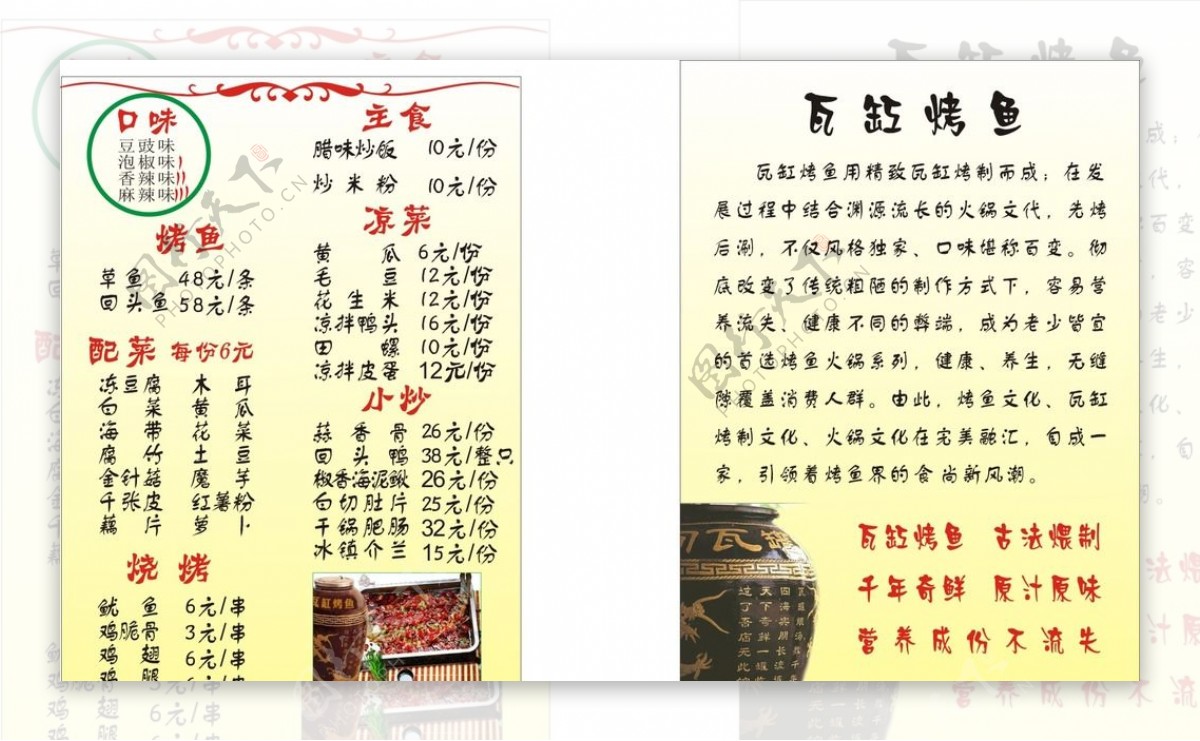 口味
豆豉味
泡椒味
香辣味
麻辣味
烤鱼
草鱼 48元/条
回头鱼 58元/条
配菜 每份6元
冻豆腐 木耳
白菜 黄瓜
海带 花菜
腐竹 土豆
金针菇 魔芋
千张皮 红薯粉
藕片 萝卜
烧烤
鱿鱼 6元/串
鸡脆骨 3元/串
鸡翅 6元/串
鸡腿
主食
腊味炒饭 10元/份
炒米粉 10元/份
凉菜
黄瓜 6元/份
毛豆 12元/份
花生米 12元/份
凉拌鸭头 16元/份
田螺 10元/份
凉拌皮蛋 12元/份
小炒
蒜香骨 26元/份
回头鸭 38元/整只
椒香海泥鳅 26元/份
白切肚片 25元/份
干锅肥肠 32元/份
冰镇介兰 15元/份
瓦缸烤鱼
瓦缸烤鱼
瓦缸烤鱼用精致瓦缸烤制而成；在发
展过程中结合渊源流长的火锅文代，先烤
后涮，不仅风格独家、口味堪称百变。彻
底改变了传统粗陋的制作方式下，容易营
养流失、健康不同的弊端，成为老少皆宜
的首选烤鱼火锅系列，健康、养生，无缝
隙覆盖消费人群。由此，烤鱼文化、瓦缸
烤制文化、火锅文化在完美融汇，自成一
家，引领着烤鱼界的食尚新风潮。
瓦缸烤鱼 古法煨制
千年奇鲜 原汁原味
营养成份不流失
图行天下
PHOTOPHOTO.CN
图行天下
PHOTOPHOTO.CN